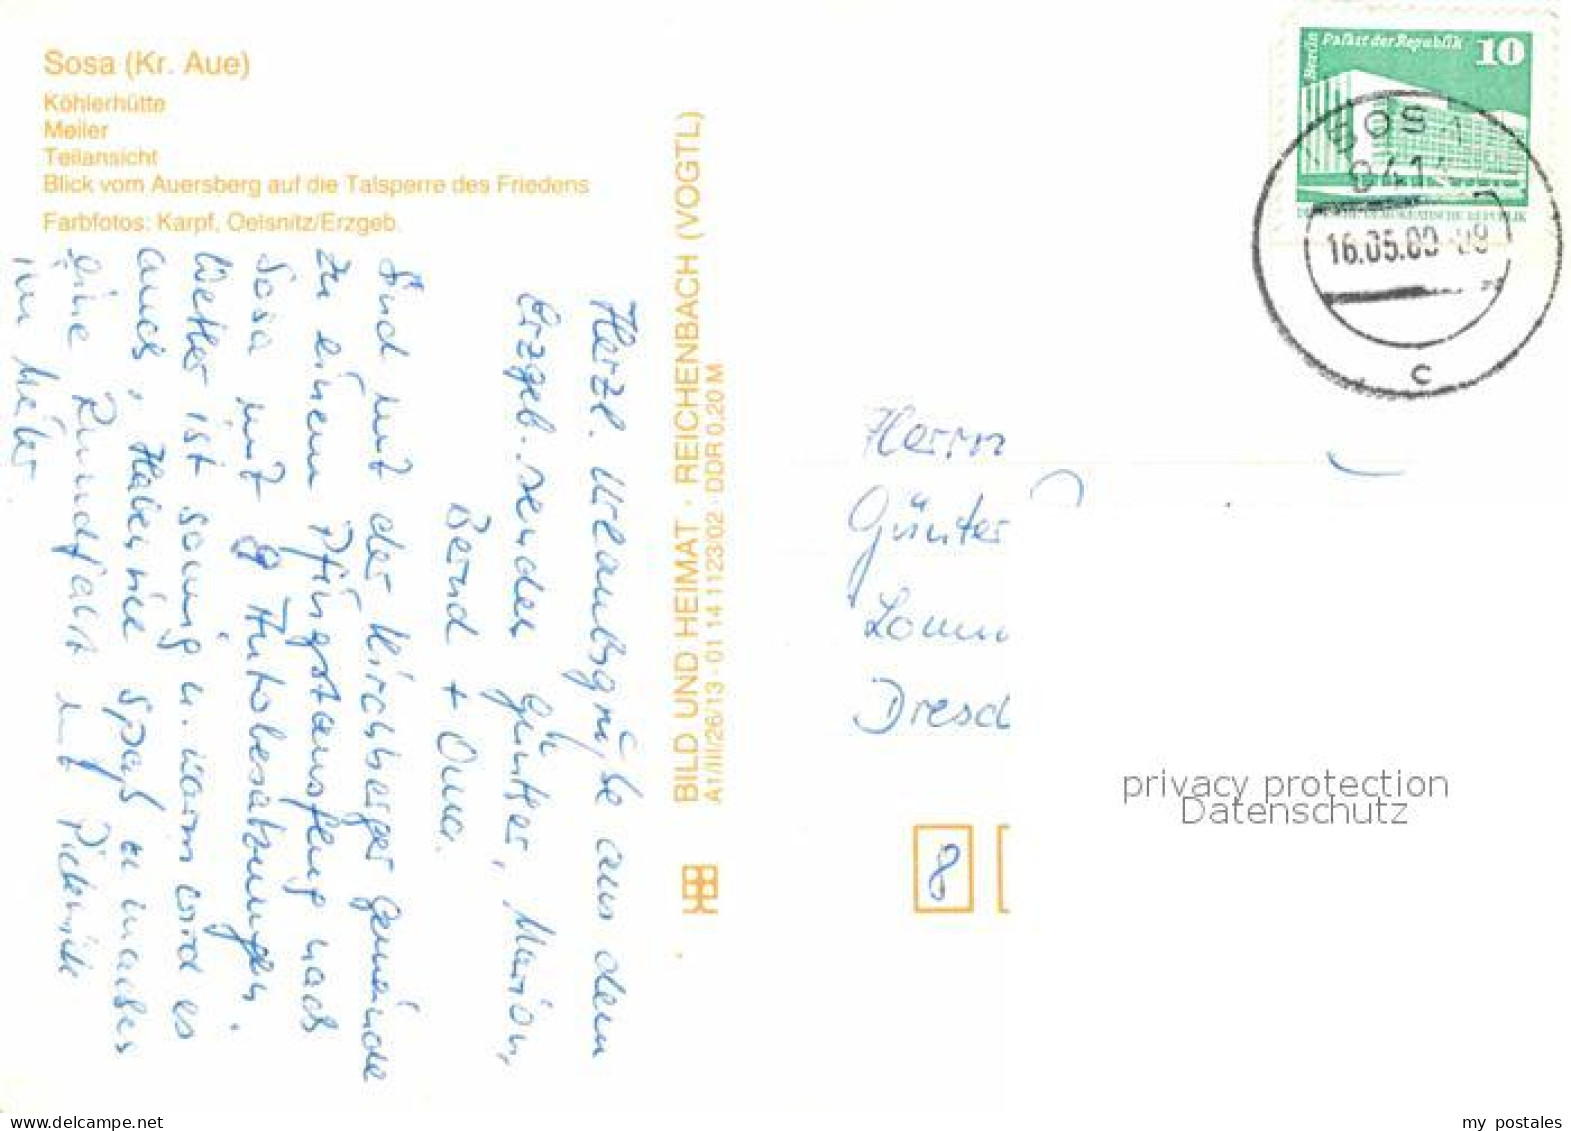 Sosa (Kr. Aue)
Köhlerhütte
Meiler
Teilansicht
Blick vom Auersberg auf die Talsperre des Friedens
Farbfotos: Karpf, Oelsnitz/Erzgeb.
Herzl. Urlaubsgrüße aus dem
Erzgeb. senden Günter, Marion,
Bernd + Oma.
Sind mit der Kirchberger Gemeinde
zu einem Pfingstausflug nach
Sosa mit 8 Autobesatzungen.
Wetter ist sonnig u. warm wird es
auch, Haben viel Spaß zu machen
eine Rundfahrt mit Picknick
BILD UND HEIMAT · REICHENBACH (VOGTL)
A1/III/26/13 · 01 14 1123/02 · DDR 0,20 M
Berlin Palast der Republik 10
DEUTSCHE DEMOKRATISCHE REPUBLIK
SOSA 1
941
16.05.80-08
c
Herrn
Günter
Lomm
Dresd
8
privacy protection
Datenschutz
my postales